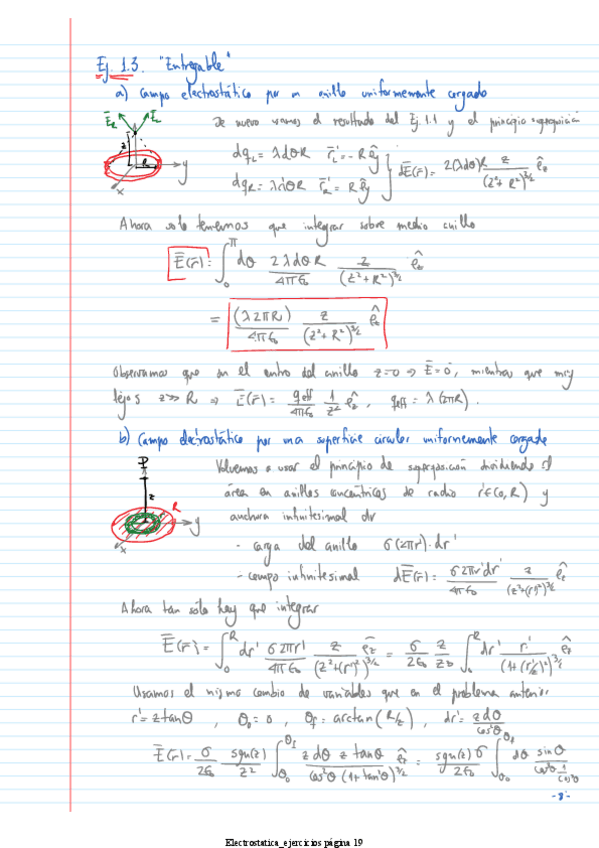 Ej. 1.3. "Entregable"
a) Campo electrostático por un anillo uniformemente cargado
De nuevo usamos el resultado del Ej. 1.1 y el principio superposición
dq_L = λdθR r̄'_L = -R ê_y
dq_R = λdθR r̄'_R = R ê_y } dĒ(r̄) = 2(λdθ)R z/(z²+R²)^{3/2} ê_z
Ē_R Ē_L
z R y x
Ahora solo tenemos que integrar sobre medio anillo
Ē(r̄) = ∫_0^π dθ 2λdθR/4πε₀ z/(z²+R²)^{3/2} ê_z
= (λ2πR)/4πε₀ z/(z²+R²)^{3/2} ê_z
Observamos que en el centro del anillo z=0 ⇒ Ē=0, mientras que muy
lejos z>>R ⇒ Ē(r̄) = q_eff/4πε₀ 1/z² ê_z, q_eff = λ(2πR).
b) Campo electrostático por una superficie circular uniformemente cargada
P z R y x
Volvemos a usar el principio de superposición dividiendo el
área en anillos concéntricos de radio r'∈(0,R) y
anchura infinitesimal dr
- carga del anillo σ(2πr')·dr'
- campo infinitesimal dĒ(r̄) = σ2πr'dr'/4πε₀ z/(z²+(r')²)^{3/2} ê_z
Ahora tan sólo hay que integrar
Ē(r̄) = ∫_0^R dr' σ2πr'/4πε₀ z/(z²+(r')²)^{3/2} ê_z = σ/2ε₀ z/z³ ∫_0^R dr' r'/(1+(r'/z)²)^{3/2} ê_z
Usamos el mismo cambio de variables que en el problema anterior
r' = z tanθ , θ₀ = 0 , θ_f = arctan(R/z) , dr' = zdθ/cos²θ
Ē(r̄) = σ/2ε₀ sgn(z)/z² ∫_{θ₀}^{θ_f} z dθ z tanθ/cos²θ (1+tan²θ)^{3/2} ê_z = sgn(z)σ/2ε₀ ∫_{θ₀}^{θ_f} dθ sinθ/cos³θ 1/cos³θ
-8-
Electrostatica_ejercicios página 19